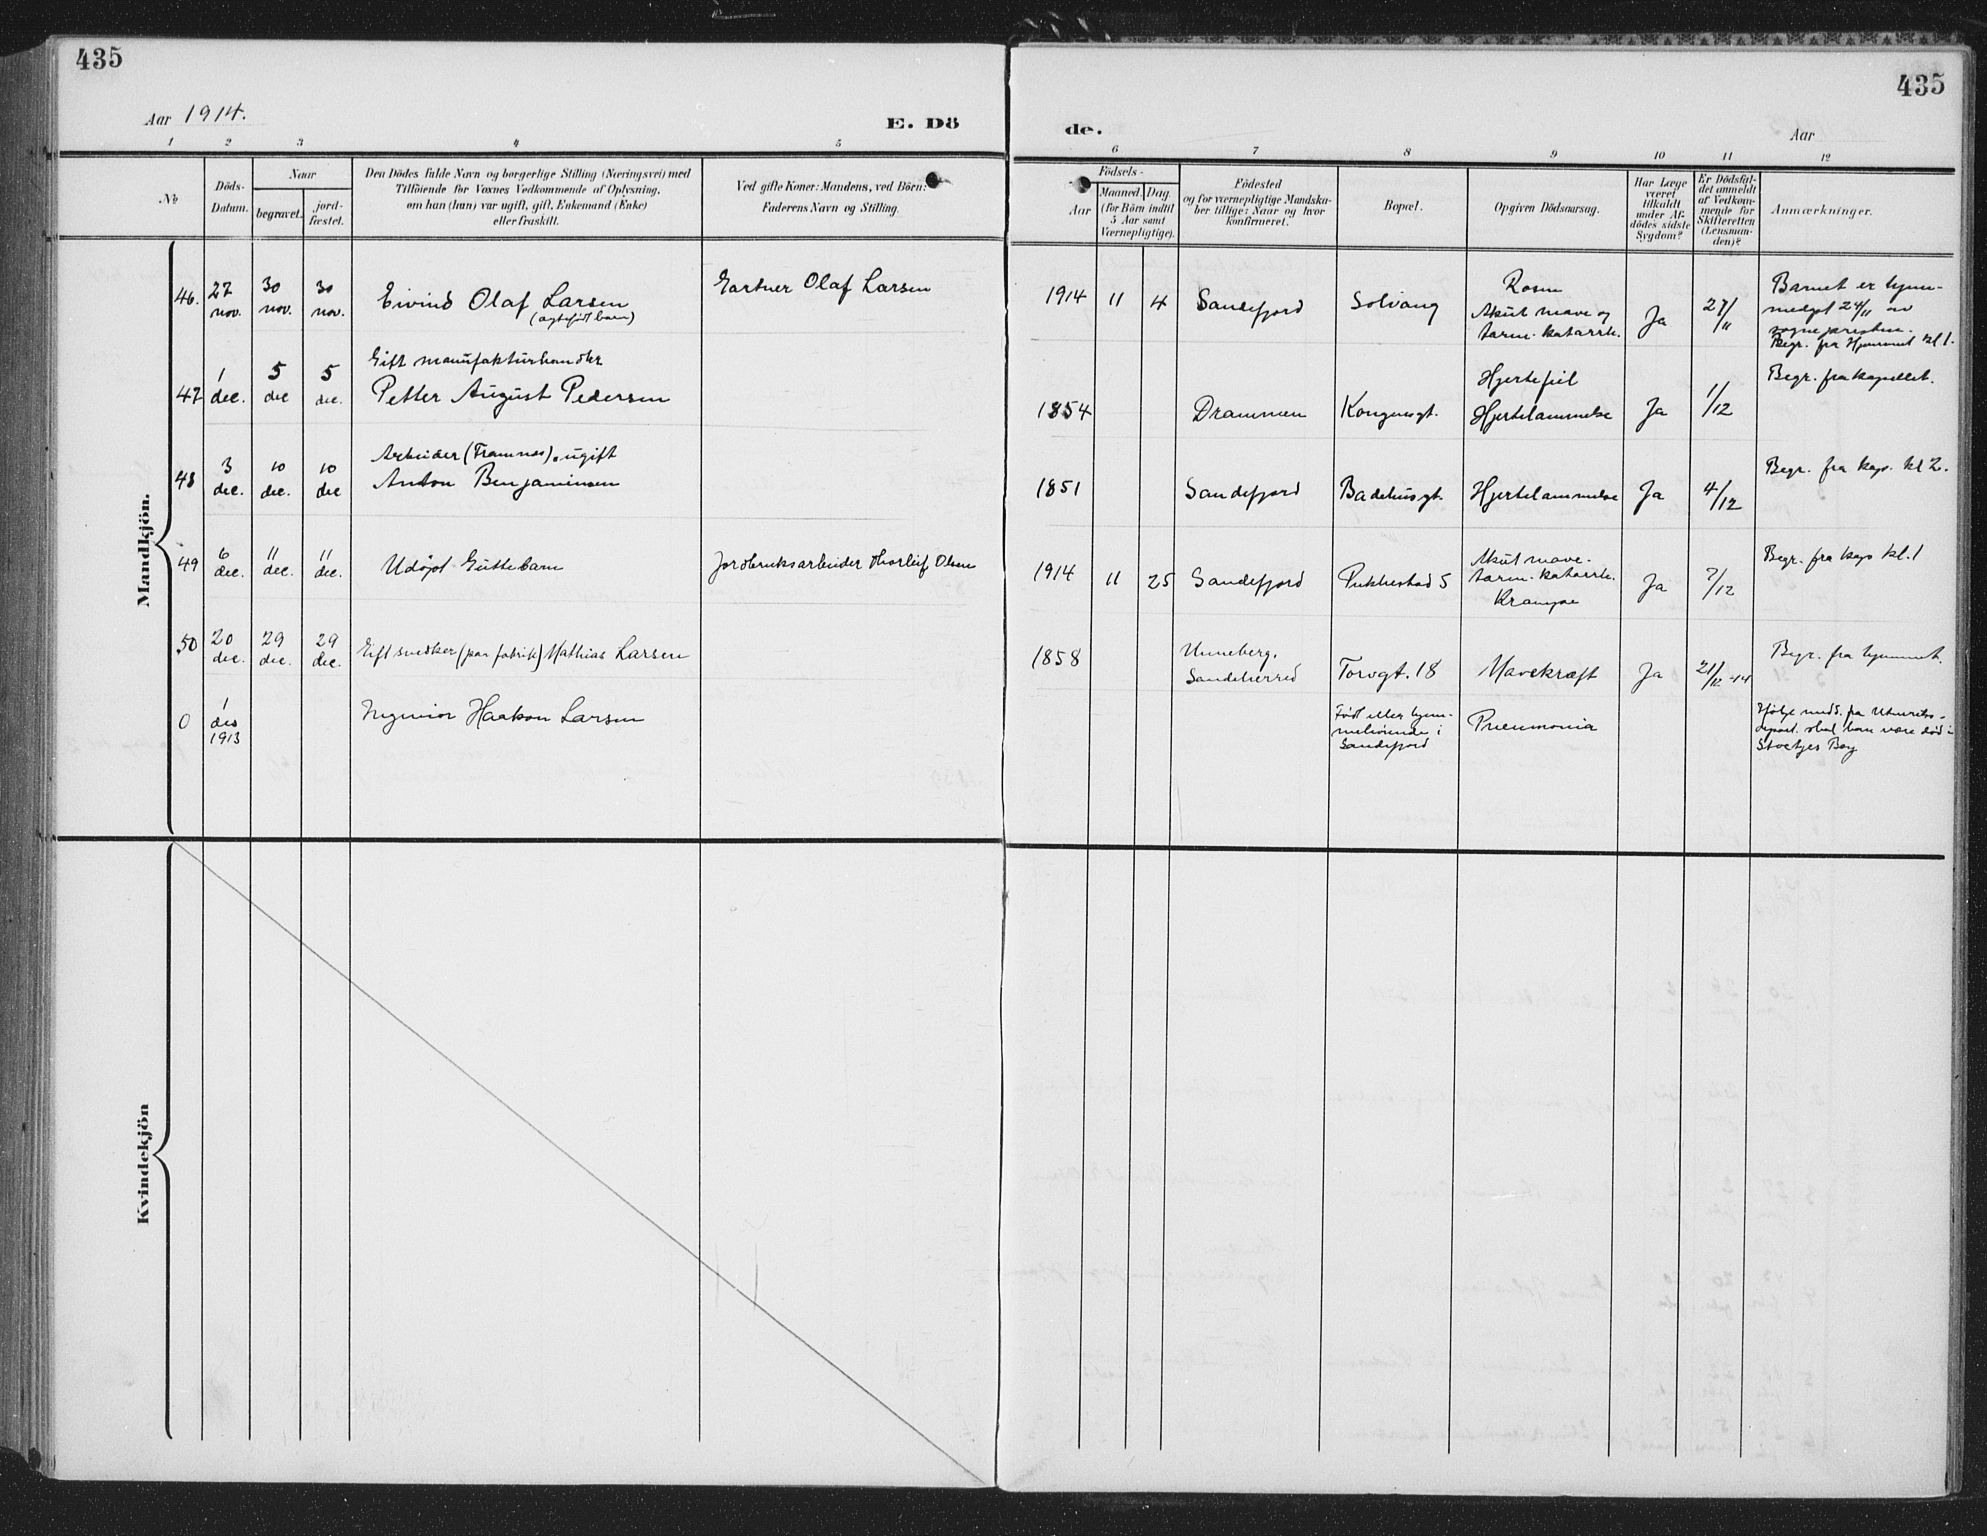 435
435
Aar 1914.
E. Dö
de.
Aar
1 2 3 4 5
6 7 8 9 10 11 12
No
Döds-
Datum.
Naar
begravet.
jord-
fæstet.
Den Dödes fulde Navn og borgerlige Stilling (Næringsvei) med
Tilföiende for Voxnes Vedkommende af Oplysning,
om han (hun) var ugift, gift, Enkemand (Enke)
eller fraskilt.
Ved gifte Koner: Mandens, ved Börn:
Faderens Navn og Stilling.
Födsels-
Aar
Maaned. Dag.
(for Börn indtil
5 Aar samt
Værnepligtige).
Födested
og for værnepligtige Mandska-
ber tillige: Naar og hvor
konfirmeret.
Bopæl.
Opgiven Dödsaarsag.
Har Læge
været
tilkaldt
under Af-
dödes sidste
Sygdom?
Er Dödsfal-
det anmeldt
af Vedkom-
mende for
Skifteretten
(Lensman-
den)?
Anmærkninger.
Mandkjön.
46. 27 nov. 30 nov. 30 nov.
Eivind Olaf Larsen
(ægtefødt barn)
Gartner Olaf Larsen
1914 11 4 Sandefjord Solvang
Rosen
Akut mave og
tarm-katarrh.
Ja 27/11
Barnet er hjem-
medøpt 24/11 av
sognepresten.
Begr. fra Hjemmet kl 1.
47 1 dec. 5 dec 5 dec.
Gift manufakturhandler
Petter August Pedersen
1854 Drammen Kongensgt.
Hjertefeil
Hjertelammelse
Ja 1/12
Begr. fra kapellet.
48 3 dec. 10 dec. 10 dec
Arbeider (Framnæs), ugift
Anton Benjaminsen
1851 Sandefjord Badehusgt. Hjertelammelse Ja 4/12
Begr. fra kap. kl 2.
49 6 dec. 11 dec. 11 dec.
Udøpt Guttebarn
Jordbruksarbeider Thorleif Olsen
1914 11 25 Sandefjord Pukkestad 5
Akut mave-
tarm-katarrh.
Krampe
Ja 7/12
Begr. fra kap kl. 1
50 20 dec. 29 dec. 29 dec.
Gift snedker (paa fabrik) Mathias Larsen
1858
Unneberg,
Sandeherred
Torvgt. 18 Mavekræft Ja 21/12-14
Begr. fra hjemmet.
0 1 des 1913
Ingeniør Haakon Larsen
Født eller hjem-
mehørende i
Sandefjord
Pneumonia
Ifølge medd. fra Utenriks-
depart. skal han være død i
Bay
Kvindekjön